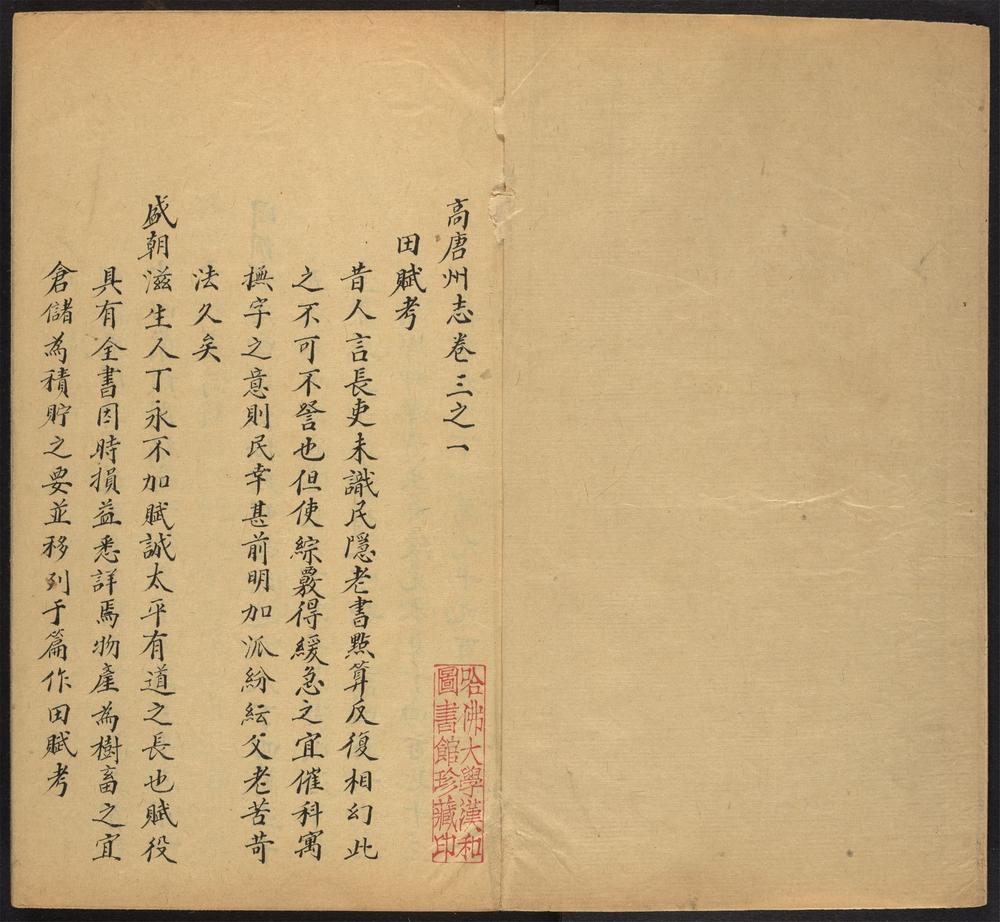 高唐州志卷三之一
田賦考
昔人言長吏未識民隱老書點算反復相幻此
之不可不詧也但使綜覈得緩急之宜催科寓
撫字之意則民幸甚前明加派紛紜父老苦苛
法久矣
盛朝滋生人丁永不加賦誠太平有道之長也賦役
具有全書因時損益悉詳焉物產為樹畜之宜
倉儲為積貯之要並移列于篇作田賦考
哈佛大學漢和
圖書館珍藏印